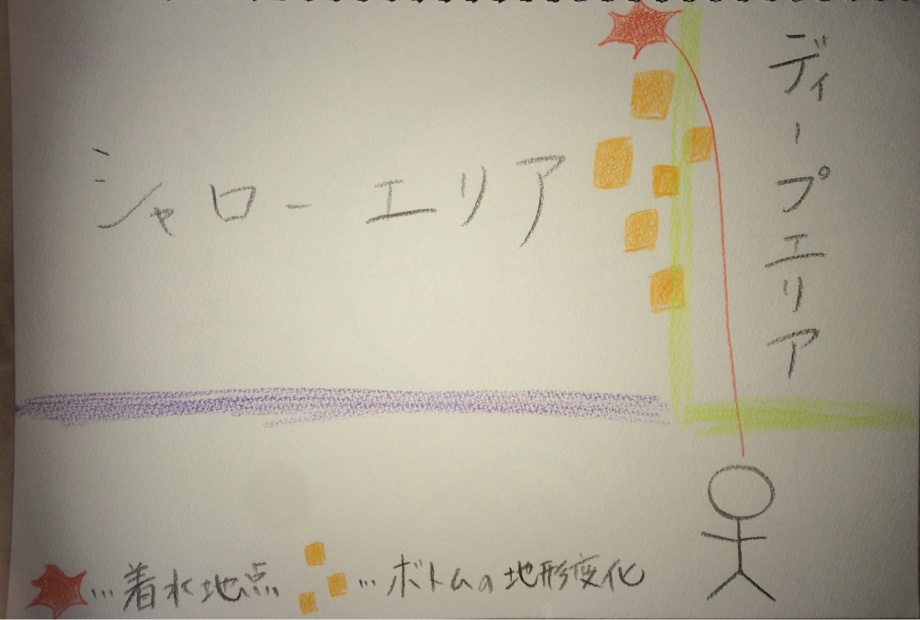 シャローエリア
ディープエリア
…着水地点
…ボトムの地形変化